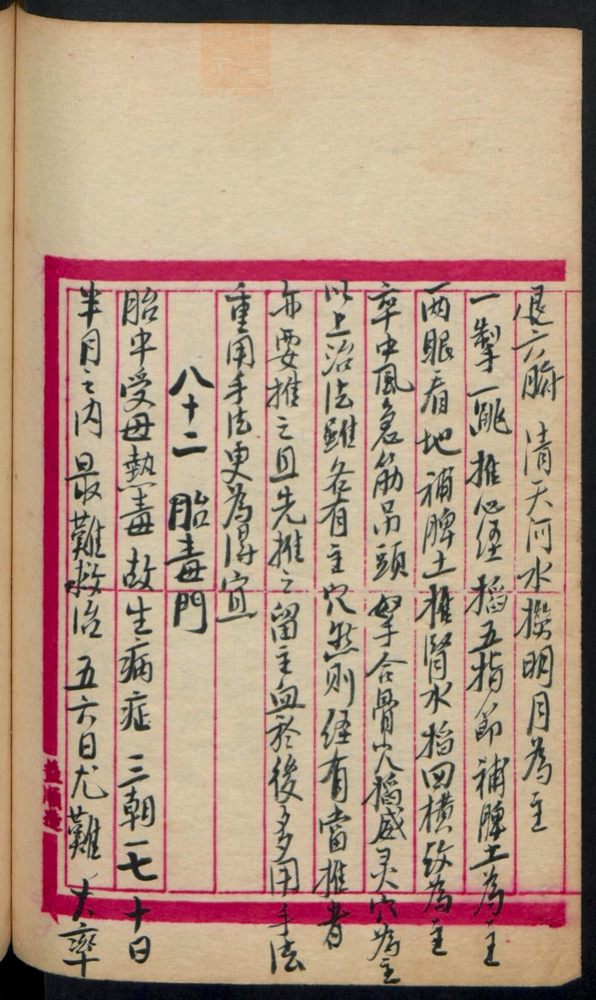 退六腑 清天河水撈明月為主
一掣一跳推心经掐五指節補脾土為主
两眼看地補脾土推腎水掐四横纹為主
卒中風急筋吊頭拿合骨穴掐威灵穴為主
以上治法雖各有主穴然则经有當推者
亦要推之且先推之留主血於後多用手法
重用手法更為得宜
八十二 胎毒門
胎中受母熱毒故生病症三朝一七十日
半月之内最難救治五六日尤難大率
益順造